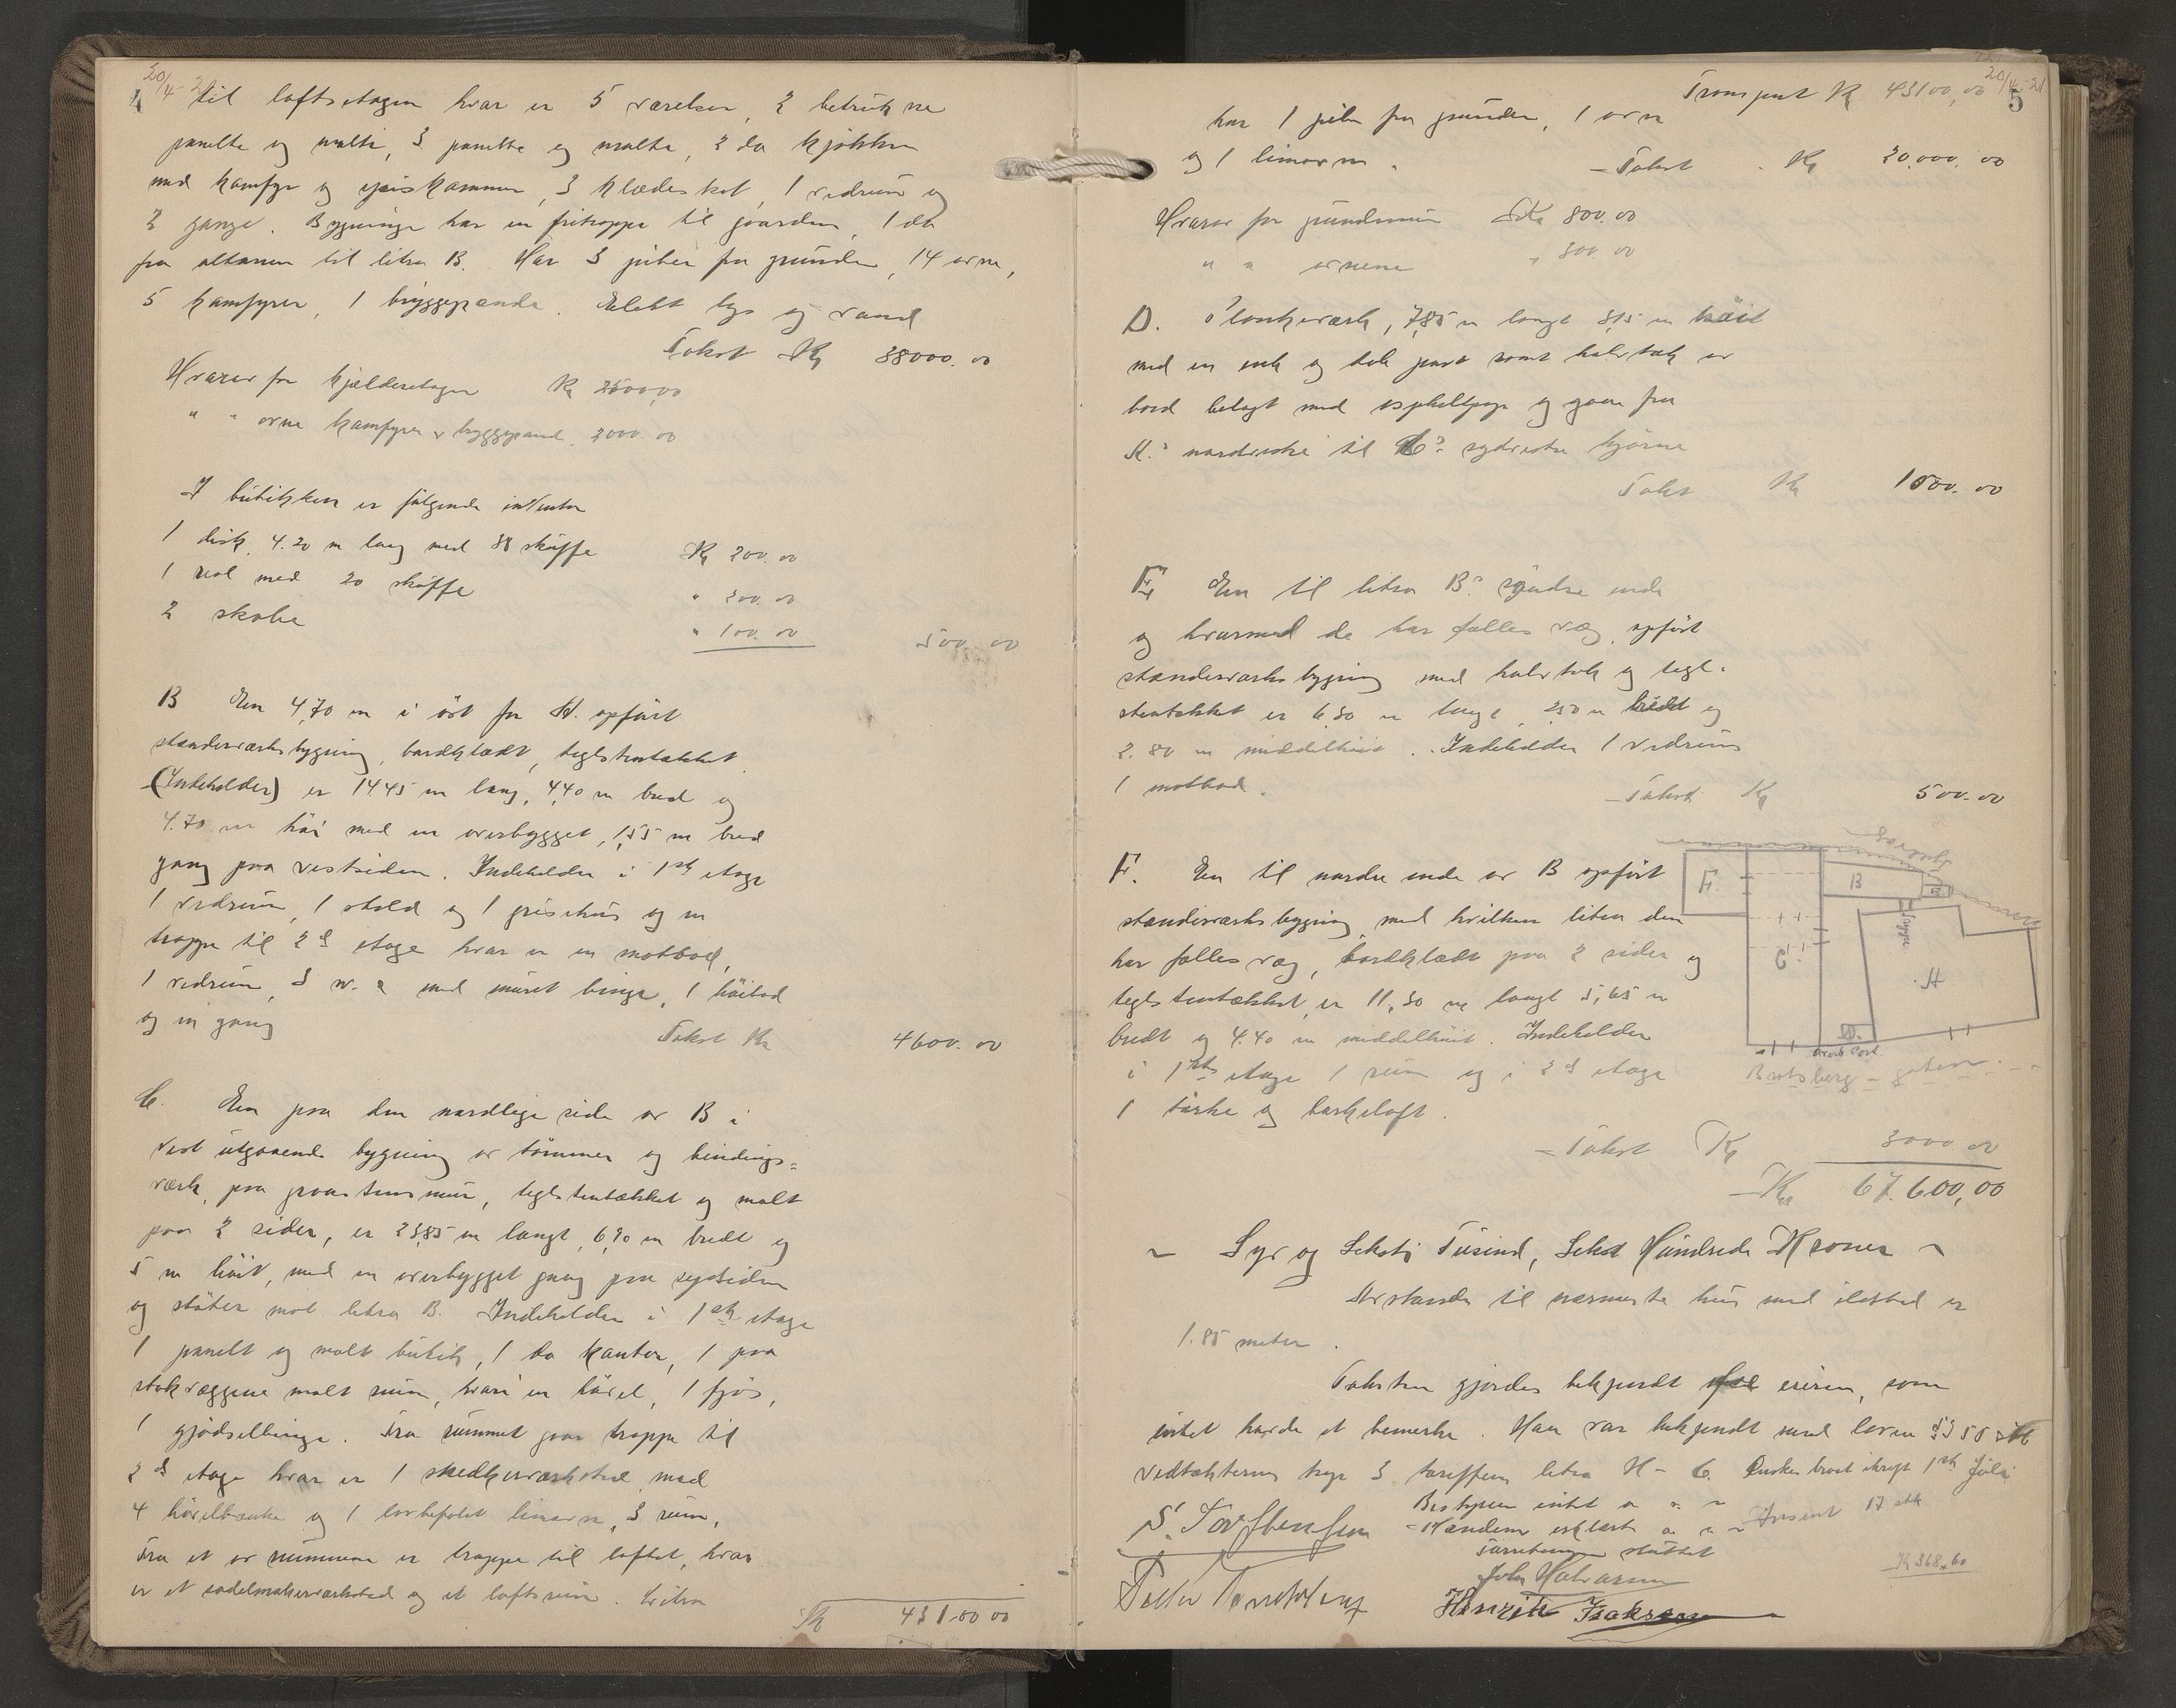 20/4-21
4
til loftsetagen hvor er 5 værelser, 2 betrukne
panelte og malte, 3 panelte og malte, 2 do kjøkken
med komfyr og spiskammer, 3 klædeskot, 1 vedrum og
2 gange. Bygningen har en fritrappe til gaarden, 1 do
fra altanen til litra B. Har 3 piber fra grunden, 14 ovne,
5 komfyrer, 1 bryggepande. Elekt lys og vand
Takst Kr 38000.00
Hvorav for kjælderetagen Kr 2500,00
" " ovne komfyrer & bryggepande 2000.00
I butikken er følgende inventar
1 disk 4.20 m lang med 38 skuffe Kr 200.00
1 reol med 20 skuffe " 200.00
2 skabe " 100.00 500.00
B En 4,70 m i øst for A. opført
stenderværksbygning, bordklædt, teglstentækket
(Indeholder) er 14.45 m lang, 4,40 m bred og
4.70 m høi med en overbygget, 1,55 m bred
gang paa vestsiden. Indeholder i 1ste etage
1 vedrum, 1 stald og 1 grisehus og en
trappe til 2d etage hvor er en matbod,
1 vedrum, 3 w.c med muret binge, 1 høibod
og en gang
Takst Kr 4600.00
C. En paa den nordlige side av B i
vest utgaaende bygning av tømmer og bindings=
værk, paa graastensmur, teglstentækket og malt
paa 2 sider, er 23,85 m langt, 6,70 m bredt og
5 m høit, med en overbygget gang paa sydsiden
og støter mot litra B. Indeholder i 1ste etage
1 panelt og malt butik, 1 do kontor, 1 paa
stokvæggene malt rum, hvori en høvel, 1 fjøs,
1 gjødselbinge. Fra rummet gaar trappe til
2d etage hvor er 1 snedkerværksted med
4 høvelbænke og 1 lovbefalet limovn, 3 rum,
Fra et av rummene er trappe til loftet, hvor
er et sadelmakerværksted og et loftsrum. Litra
Kr 43100 00
20/4-21
5
Transport Kr 43100,00
har 1 pibe fra grunden, 1 ovn
og 1 limovn. Takst Kr 20,000.00
Hvorav for grundmur Kr 800.00
" " ovnene " 300.00
D. Plankeværk, 7,85 m langt 3,15 m høit
med en enk og dob port samt halvtak av
bord belagt med asphaltpap og gaar fra
A.s nordvestre til C.s sydvestre hjørne
Takst Kr 1500.00
E En til litra B.s søndre ende
og hvormed de har fælles væg, opført
stenderværksbygning med halvtak og tegl-
stentækket er 6,30 m langt, 2,50 m bredt og
2.80 m middelhøit. Indeholder 1 vedrum
1 matbod. Takst Kr 500.00
F. En til nordre ende av B opført
stenderværksbygning med hvilken litra den
har fælles væg, bordklædt paa 2 sider og
teglstentækket, er 11,30 m langt 5,65 m
bredt og 4.40 m middelhøit. Indeholder
i 1ste etage 1 rum og i 2d etage
1 tørke og barkeloft.
F.
B
E
Trappe
C.
A.
D.
Port
Bratsberg-gaten
Takst Kr 3000 00
Kr 67.600,00
~ Syv og Seksti Tusind, Seks Hundrede Kroner ~
Avstanden til nærmeste hus med ildsted er
1.85 meter.
Taksten gjordes bekjendt for eieren, som
intet havde at bemerke. Han var bekjendt med loven
Bestyreren intet
Manden erklærte
Forretningen sluttet
S. Torstensen
John Halvorsen
Henrik Isaksen
Kr 368.60